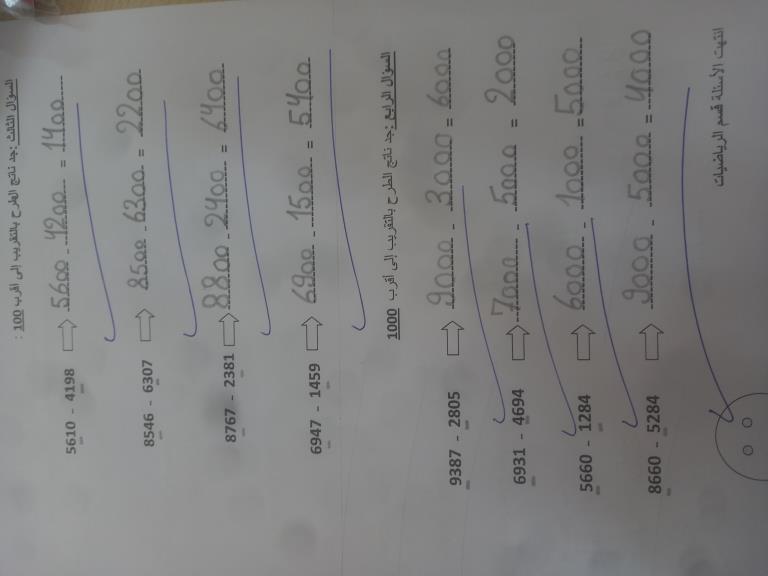 السؤال الثالث : جد ناتج الطرح بالتقريب إلى أقرب 100 :
5610 - 4198 ⇨ 5600 - 4200 = 1400
8546 - 6307 ⇨ 8500 - 6300 = 2200
8767 - 2381 ⇨ 8800 - 2400 = 6400
6947 - 1459 ⇨ 6900 - 1500 = 5400
السؤال الرابع : جد ناتج الطرح بالتقريب إلى أقرب 1000
9387 - 2805 ⇨ 9000 - 3000 = 6000
6931 - 4694 ⇨ 7000 - 5000 = 2000
5660 - 1284 ⇨ 6000 - 1000 = 5000
8660 - 5284 ⇨ 9000 - 5000 = 4000
انتهت الأسئلة قسم الرياضيات